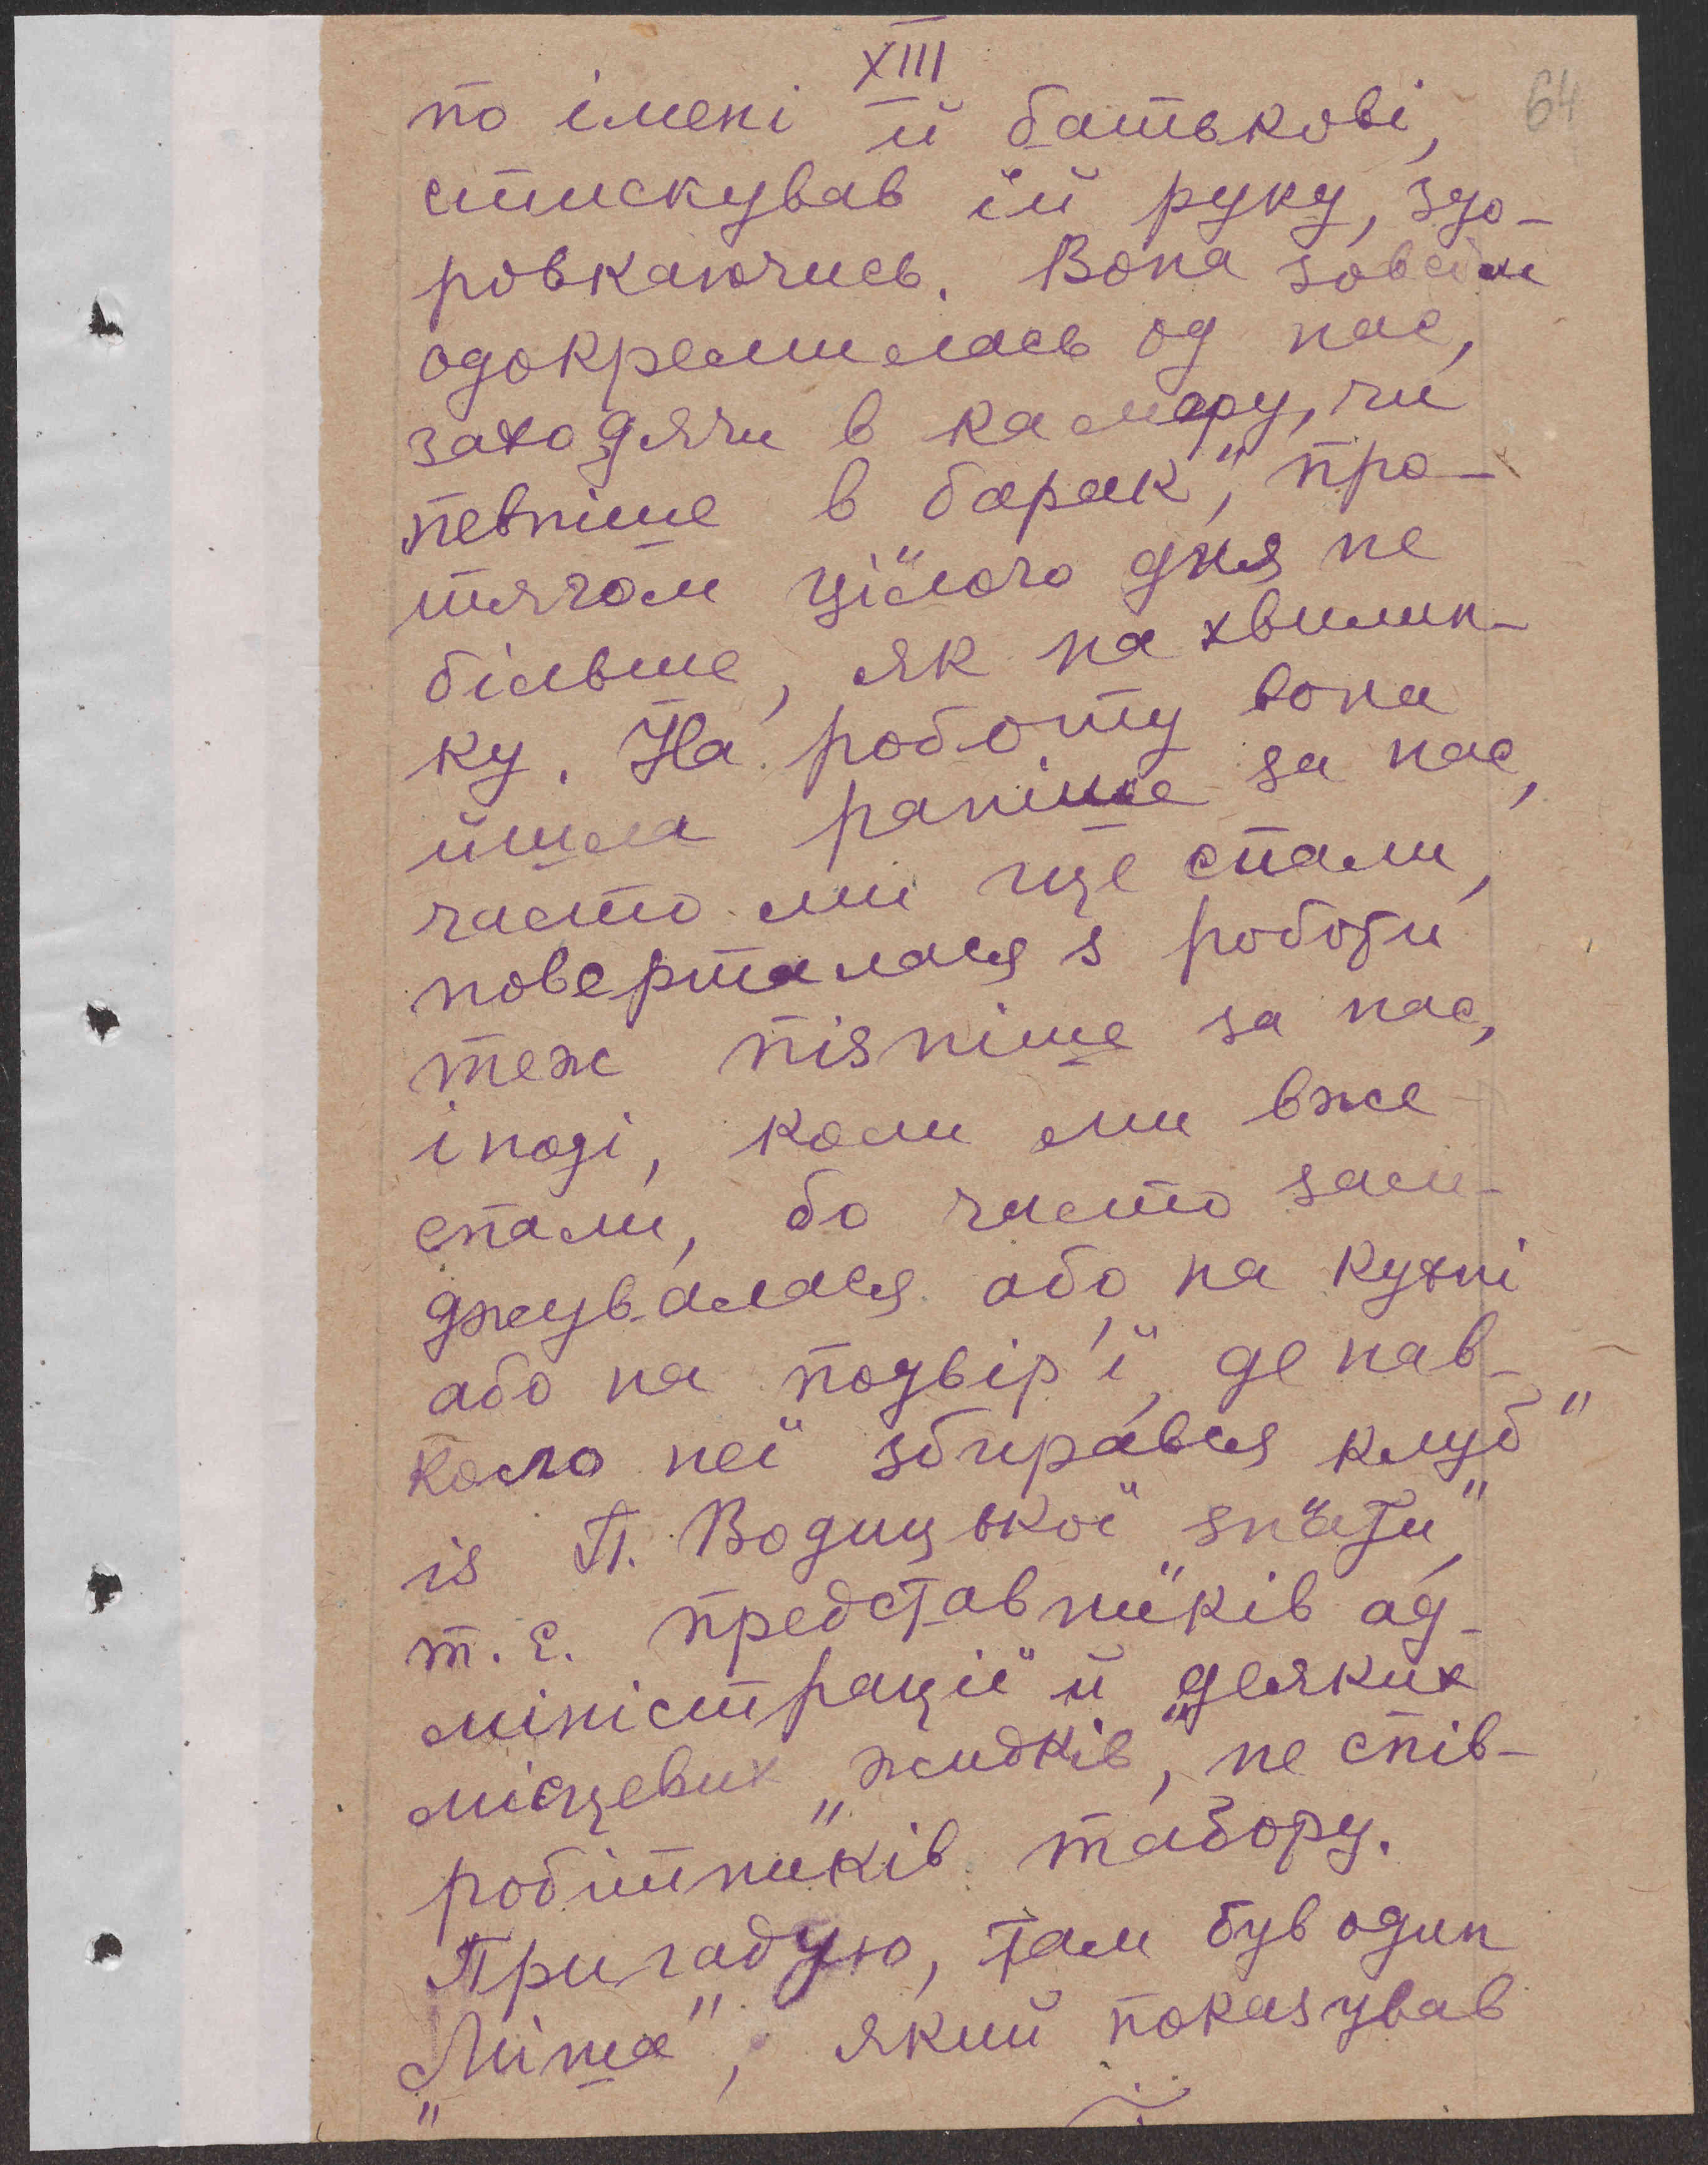 XIII
64
по імені й батькові,
стискував їй руку, здо-
ровкаючись. Вона зовсім
одокремилась од нас,
заходячи в камеру, чи
певніше в барак", про-
тягом цілого дня не
більше, як на хвилин-
ку. На роботу вона
йшла раніше за нас,
часто ми ще спали,
поверталася з роботи
теж пізніше за нас,
іноді, коли ми вже
спали, бо часто заси-
джувалася або на кухні
або на подвір'ї, де нав-
коло неї збирався клуб"
із П. Водицької знати",
т. є. представників ад-
міністрації й деяких
місцевих „жидків", не спів-
робітників табору.
Пригадую, там був один
„Міша", який показував